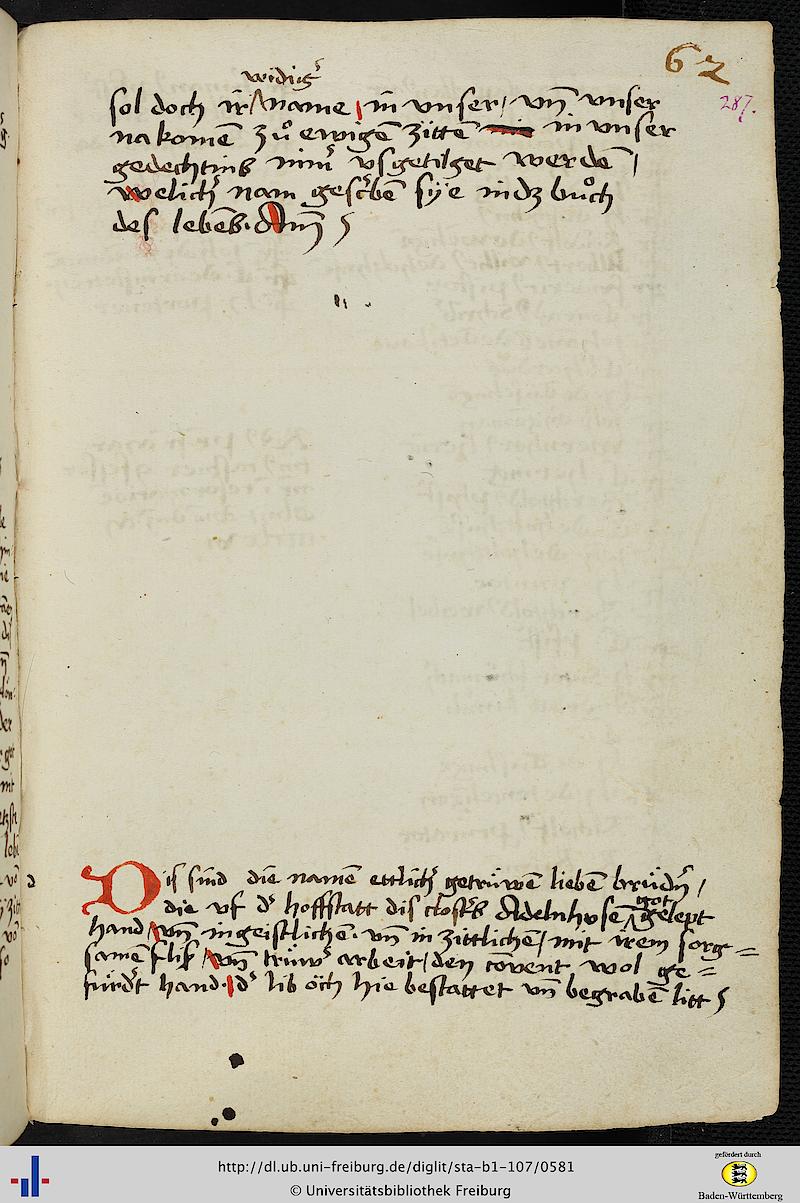 62
287.
widigˢ
sol doch ir name in vnser, vn̄ vnser
nakomē zů ewigē zittē in vnser
gedechtniß nim̄ˢ vsgetilget werdē,
welichˢ nam gescˢbē sÿe in dz bůch
des lebēß. Am̄
Dis sind die namē ettlichˢ getrüwē lieben brüdˢn,
die vf dˢ hoffstatt dis clostˢß Adelnhusē got gelept
hand, vn̄ in geistlichen. vn̄ in zittlichen, mit irem sorg=
samē fliß, vn̄ trüwˢ arbeit, den cōvent wol ge=
fürdˢt hand. dˢ lib öch hie bestattet vn̄ begrabē litt
http://dl.ub.uni-freiburg.de/diglit/sta-b1-107/0581
© Universitätsbibliothek Freiburg
gefördert durch
Baden-Württemberg